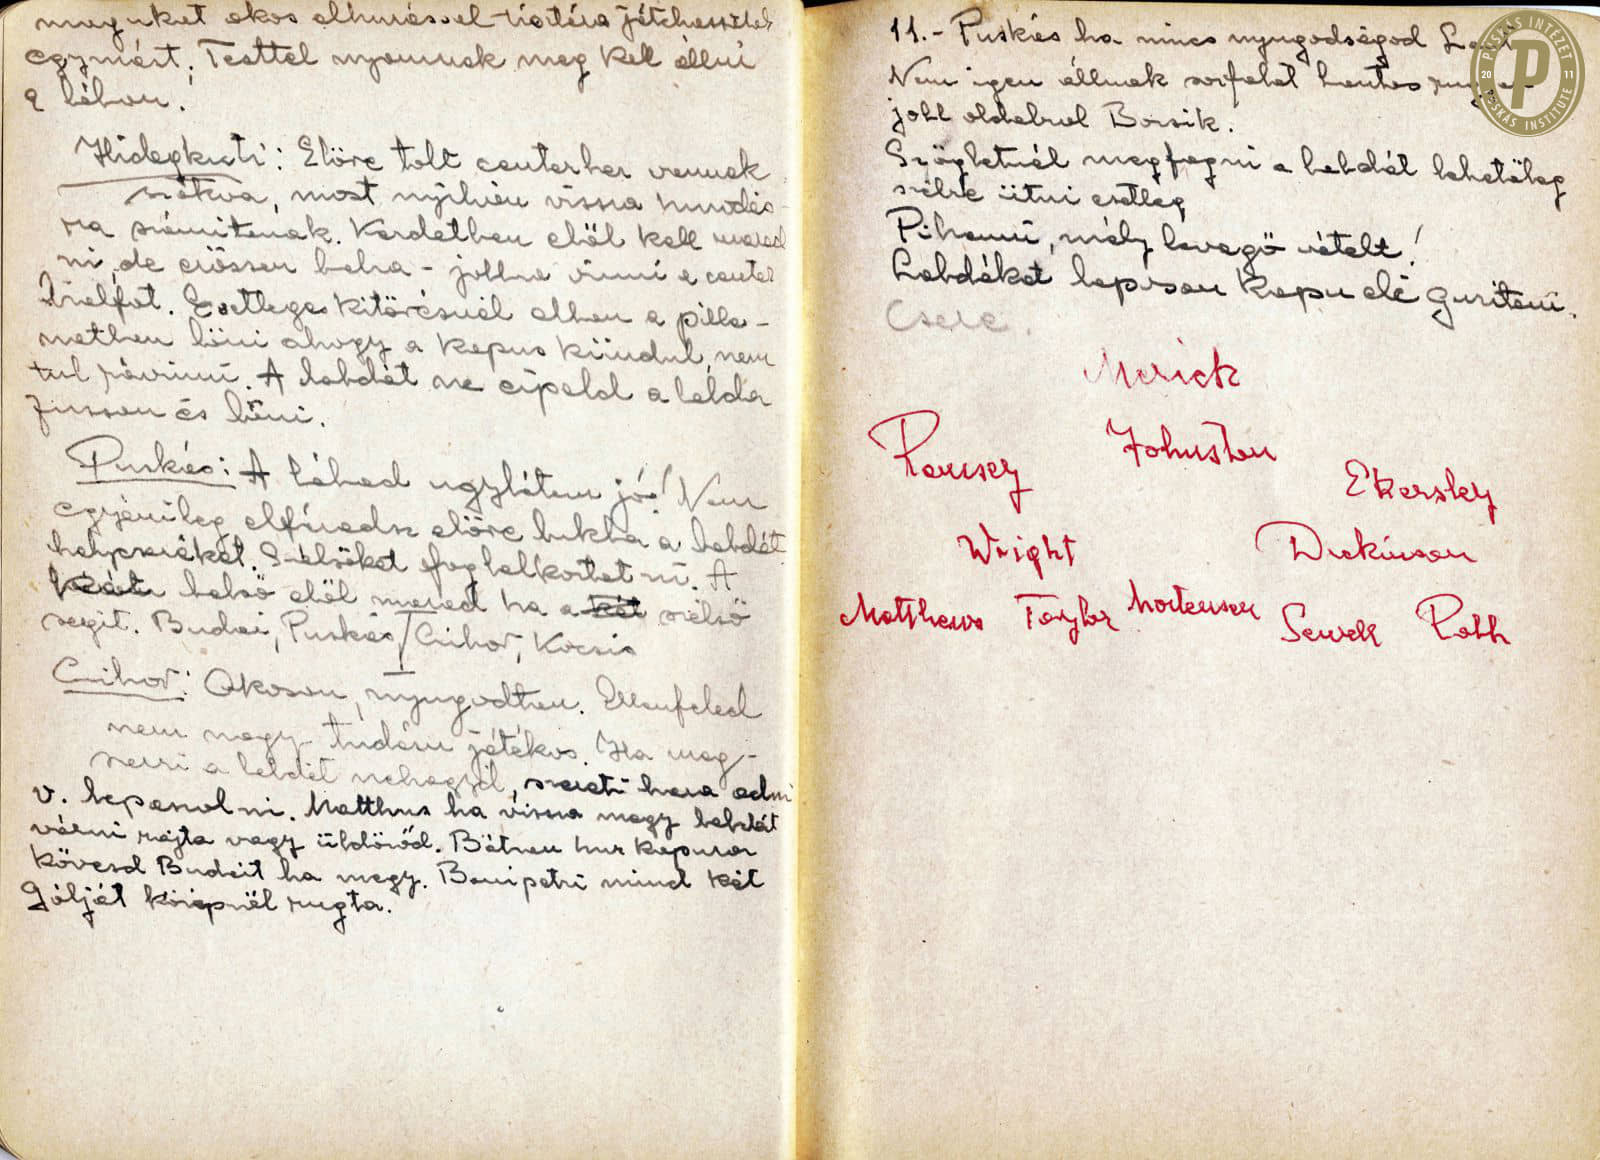 magukat okos elhúzással tisztára játszhassátok
egymást. Testtel nyomnak meg kell állni
a lábon.
Hidegkuti: Előre tolt centerhez vannak
szokva, most nyilván vissza huzódás-
ra számítanak. Kezdetben elől kell marad
ni, de erőssen balra - jobbra vinni a center
hálfot. Esetleges kitörésnél abban a pilla-
natban lőni ahogy a kapus kiindul, nem
tul rávinni. A labdát ne cipeld a labda
fusson és lőni.
Puskás: A lábad ugylátom jó! Nem
egyénileg elfáradsz előre bukba a labdát
helycseréket. Szélsőket foglalkoztatni. A
belső elől marad ha a két szélső
segit. Budai, Puskás / Czibor, Kocsis
Czibor: Okosan, nyugodtan. Ellenfeled
nem nagy tudásu játékos. Ha meg-
szerzi a labdát nehagyd, szereti haza adni
v. lepasszolni. Matthus ha vissza megy labdát
várni rajta vagy üldözöd. Bátran húz kapura
kövesd Budait ha megy. Bonipetri mind két
gólját középnél rugta.
11. - Puskás ha nincs nyugodságod
Nem igen állnak sorfalat
jobb oldalrul Bozsik.
Szögletnél megfogni a labdát lehetőleg
szélre ütni esetleg
Pihenni, mély levegő vételt!
Labdákat laposan kapu elé guritani.
Csere.
Merick
Ramsey Johnston Ekersley
Wright Dickinson
Matthews Taylor Mortensen Sewek Robb
PUSKÁS INTÉZET
20 P 11
PUSKÁS INSTITUTE